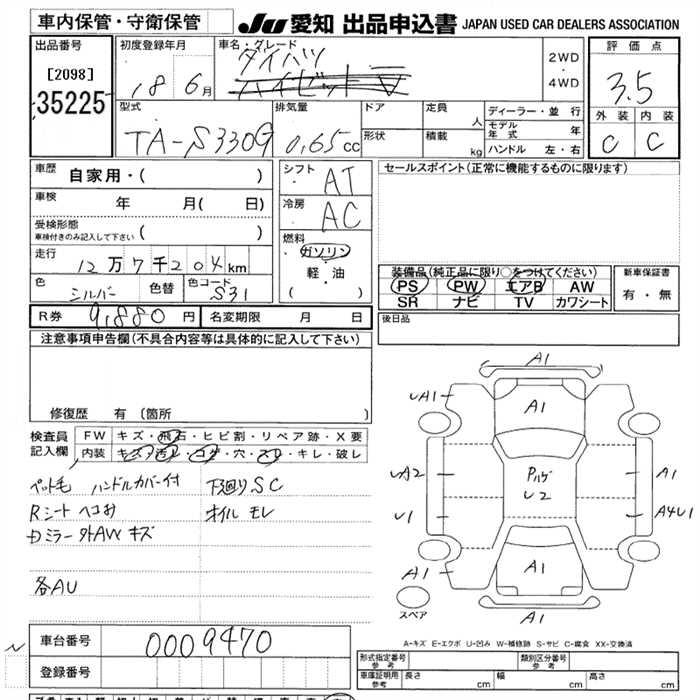 車内保管・守衛保管
JU 愛知 出品申込書 JAPAN USED CAR DEALERS ASSOCIATION
出品番号
[2098]
35225
初度登録年月
18 6月
車名・グレード
ダイハツ
ハイゼットV
2WD
・
4WD
評価点
3.5
外装 内装
C C
型式
TA-S330G
排気量
0.65cc
ドア
形状
定員
人
積載
kg
ディーラー・並行
モデル年式 年
ハンドル 左・右
車歴
自家用・( )
車検
年 月( 日)
受検形態
車検付きのみ記入して下さい ( )
走行
12万7千204km
色
シルバー
色替
色コード
S31
シフト
AT
冷房
AC
燃料
ガソリン
軽・油
( )
セールスポイント(正常に機能するものに限ります)
装備品(純正品に限り○をつけてください)
PS PW エアB AW
SR ナビ TV カワシート
新車保証書
有・無
R券 9,880円 名変期限 月 日
後日品
注意事項申告欄(不具合内容等は具体的に記入して下さい)
修復歴 有 (箇所 )
検査員
記入欄
FW キズ・飛石・ヒビ割・リペア跡・X要
内装 キズ・汚レ・コゲ・穴・スレ・キレ・破レ
ペット毛 ハンドルカバー付 下廻りSC
Rシートヘコみ オイルモレ
Dミラー外AW キズ
各AU
A1
UA1
A1
UA2
U2
A1
U1
A4U1
A1
A1
A1
スペア
A-キズ E-エクボ U-凹み W-補修跡 S-サビ C-腐食 XX-交換済
車台番号
0009470
登録番号
形式指定番号
参考
類別区分番号
参考
車庫証明用
参考
長さ cm
幅 cm
高さ cm